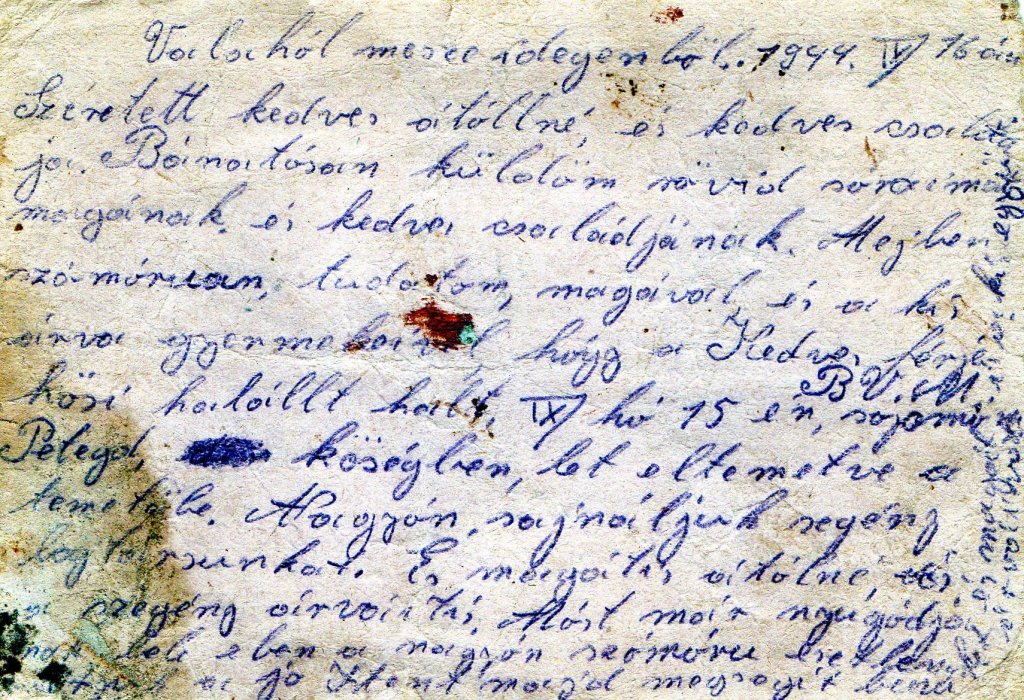 Valahól messe idegenből.. 1944. IX 16 án
Szeretett kedves átóllné, és kedves csalág
ja. Bánatósán küldöm rövid soraimat
magánák. és kedves családjánák. Mejben
szómóruan, tudatom, magával, és a kis
árva gyermekaival, hógy a Kedves férje
B V. M
hösi halállt halt, IX hó 15 én, sajomú
Pelegd, községben, let eltemetve a
temetőbe. Nagyón, sajnáljuk segény
bajtársunkat. És magátis átólné és
a szegény árváitis, Móst már nyúgódjá
nak bele eben a nagyón szómóru esetben
a jó Istent majd megsegit